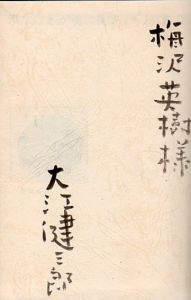 梅沢英樹様
大江健三郎